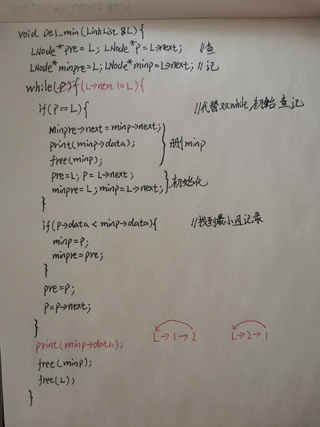 void Del_min(LinkList &L){
LNode*pre=L; LNode*p=L->next; //查
LNode*minpre=L; LNode*minp=L->next; //记
while(p){(L->next!=L){
if(p==L){ //代替双while,初始查记
minpre->next=minp->next;
print(minp->data); 删minp
free(minp);
pre=L; p=L->next; 初始化
minpre=L; minp=L->next;
}
if(p->data<minp->data){ //找到最小因记录
minp=p;
minpre=pre;
}
pre=p;
p=p->next;
}
print(minp->data); L->1->2 L->2->1
free(minp);
free(L);
}